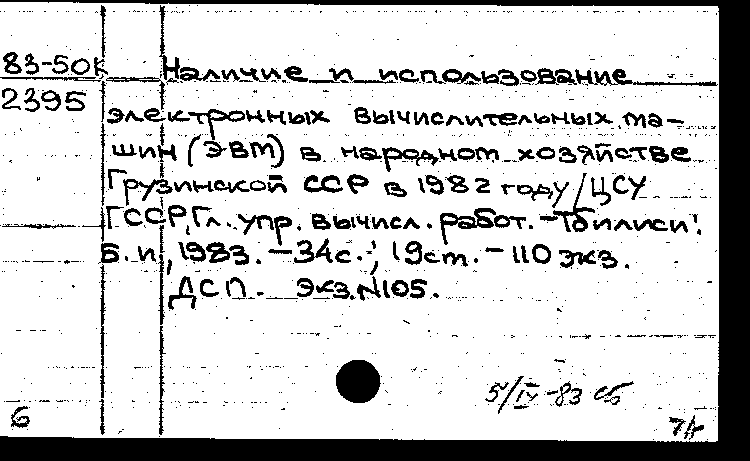 83-50к Наличие и использование
2395 электронных вычислительных ма-
шин (ЭВМ) в народном хозяйстве
Грузинской ССР в 1982 году/ЦСУ
ГССР, Гл. упр. вычисл. работ. - Тбилиси:
Б.и., 1983. - 34с.; 19см. - 110 экз.
ДСП. Экз.N105.
5/IV-83 сб
6